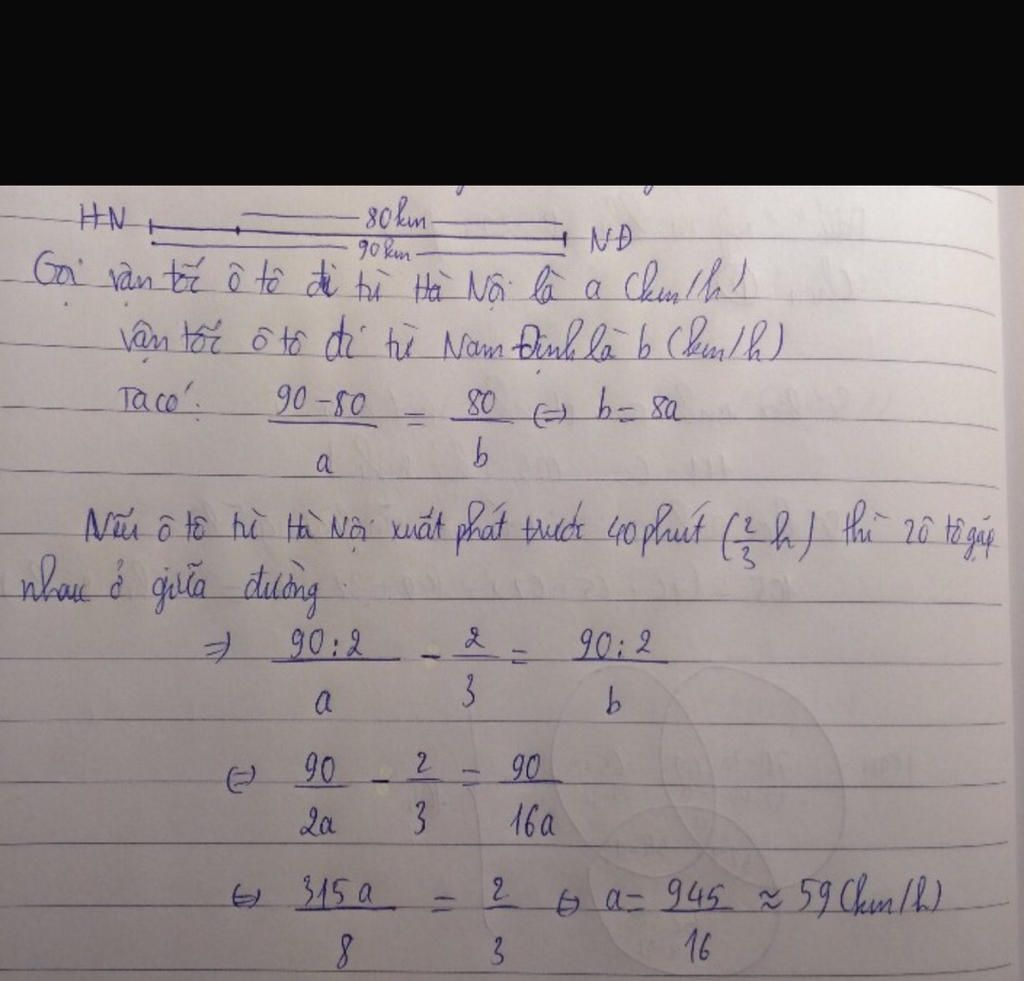 HN 80km
90km NĐ
Gọi vận tốc ô tô đi từ Hà Nội là a (km/h)
vận tốc ô tô đi từ Nam Định là b (km/h)
Ta có: (90-80)/a = 80/b ⇔ b = 8a
Nếu ô tô từ Hà Nội xuất phát trước 40 phút (2/3 h) thì 2 ô tô gặp
nhau ở giữa đường.
⇒ (90:2)/a - 2/3 = (90:2)/b
⇔ 90/2a - 2/3 = 90/16a
⇔ 315a/8 = 2/3 ⇔ a = 945/16 ≈ 59 (km/h)